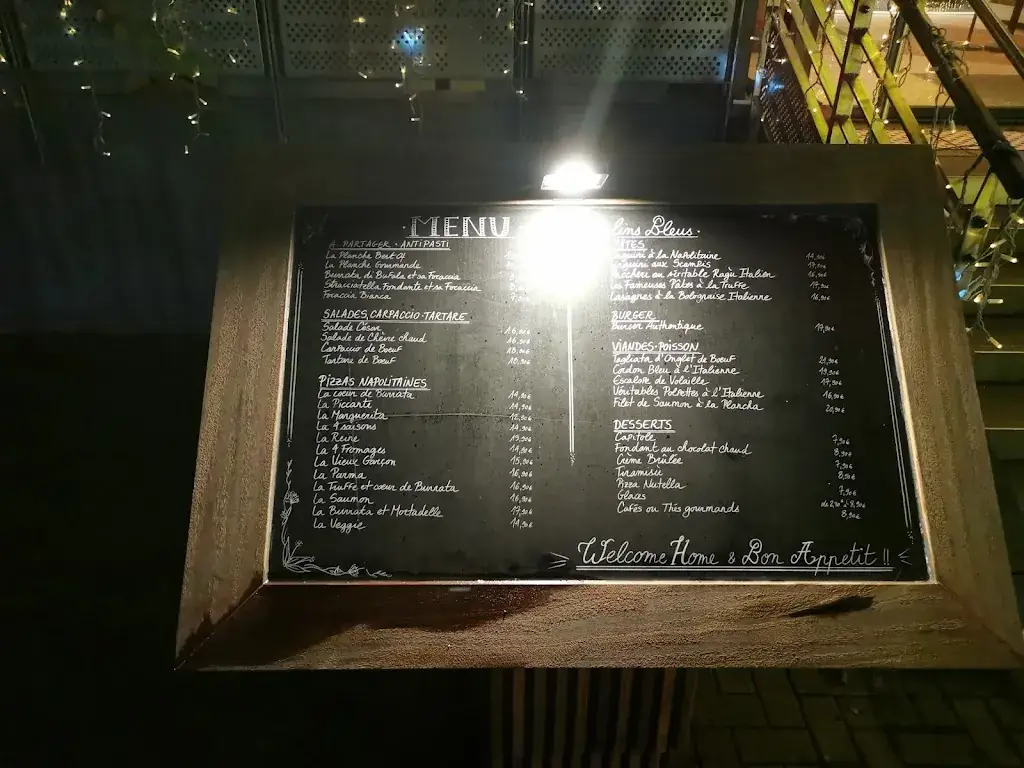 MENU
lins Bleus
A PARTAGER - ANTIPASTI
La Planche
La Planche Gourmande
Burrata di Bufala et sa Focaccia
Stracciatella Fondante et sa Focaccia
Focaccia Bianca
SALADES, CARPACCIO - TARTARE
Salade César 16,90€
Salade de Chèvre chaud 16,90€
Carpaccio de Boeuf 18,90€
Tartare de Boeuf 18,90€
PIZZAS NAPOLITAINES
La coeur de Burrata
La Piccante
La Marguerita
La 4 saisons
La Reine
La 4 Fromages
La Vieux Garçon 15,90€
La Parma 16,90€
La Truffe et coeur de Burrata 16,90€
La Saumon 16,90€
La Burrata et Mortadelle 17,90€
La Veggie 14,90€
PÂTES
Linguini à la Napolitaine
Linguini aux Scampis
au Véritable Ragù Italien
Les Fameuses Pâtes à la Truffe
Lasagnes à la Bolognaise Italienne 16,90€
BURGER
Burger Authentique 19,90€
VIANDES - POISSON
Tagliata d'Onglet de Boeuf 21,90€
Cordon Bleu à l'Italienne 19,90€
Escalope de Volaille 17,90€
Véritables Polpettes à l'Italienne 16,90€
Filet de Saumon à la Plancha 20,90€
DESSERTS
Capitole 7,90€
Fondant au chocolat chaud 8,90€
Crème Brûlée 7,90€
Tiramisù 8,90€
Pizza Nutella 7,90€
Glaces
Cafés ou Thés gourmands 8,90€
Welcome Home & Bon Appetit !!